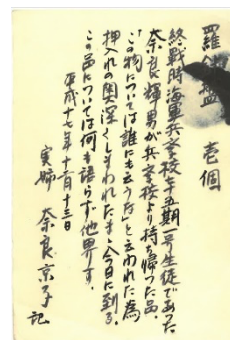 羅針盤　壱個
終戦時海軍兵学校七十五期一号生徒であった
奈良輝男が兵学校より持ち帰った品。
「この物については誰にも云うな」と云われた為
押入れの奥深くしまわれたまゝ今日に到る。
この品については何も語らず他界す。
平成十七年十二月十三日
実姉　奈良京子　記